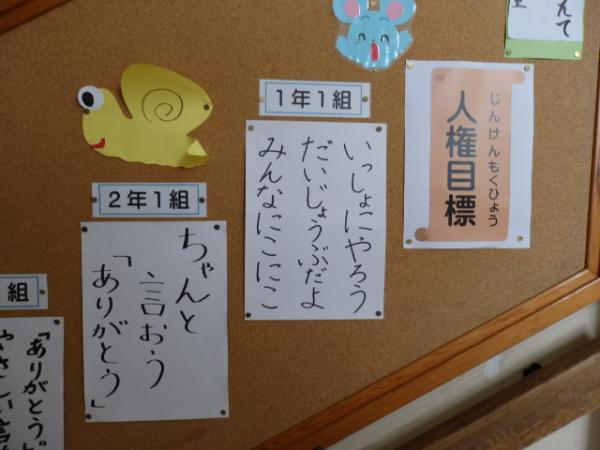 じんけんもくひょう
人権目標
1年1組
いっしょにやろう
だいじょうぶだよ
みんなにこにこ
2年1組
ちゃんと
言おう
「ありがとう」
組
「ありがとう。
やさしい言